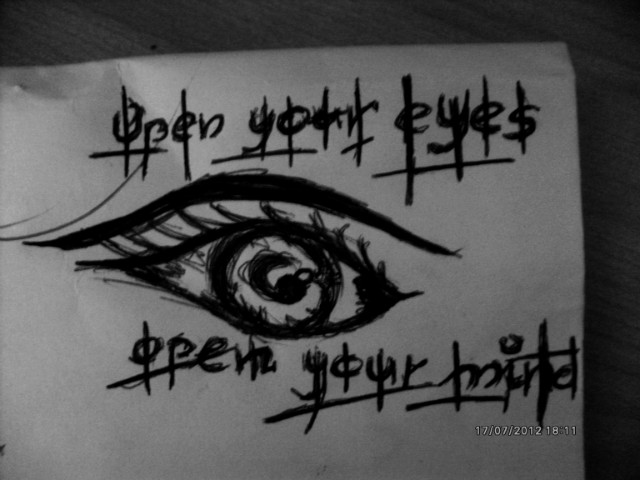 open your eyes
open your mind
17/07/2012 18:11